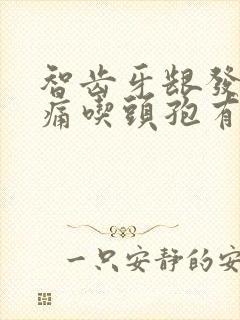 智齿牙龈發
痛喫頭孢有
一只安静的安